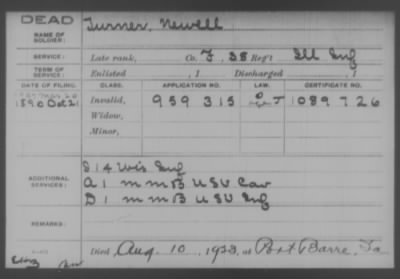 DEAD
NAME OF SOLDIER: Turner, Newell
SERVICE: Late rank, Co. F, 38 Reg't Ill Inf
TERM OF SERVICE: Enlisted , 1 Discharged , 1
DATE OF FILING. CLASS. APPLICATION NO. LAW. CERTIFICATE NO.
1890 Oct 21 Invalid, 959 315 1089 726
Widow,
Minor,
S 14 Wis Inf
ADDITIONAL SERVICES: A 1 m m B USV Cav
D 1 m m B USV Inf
REMARKS:
Died Aug. 10, 1923, at Port Barre, La